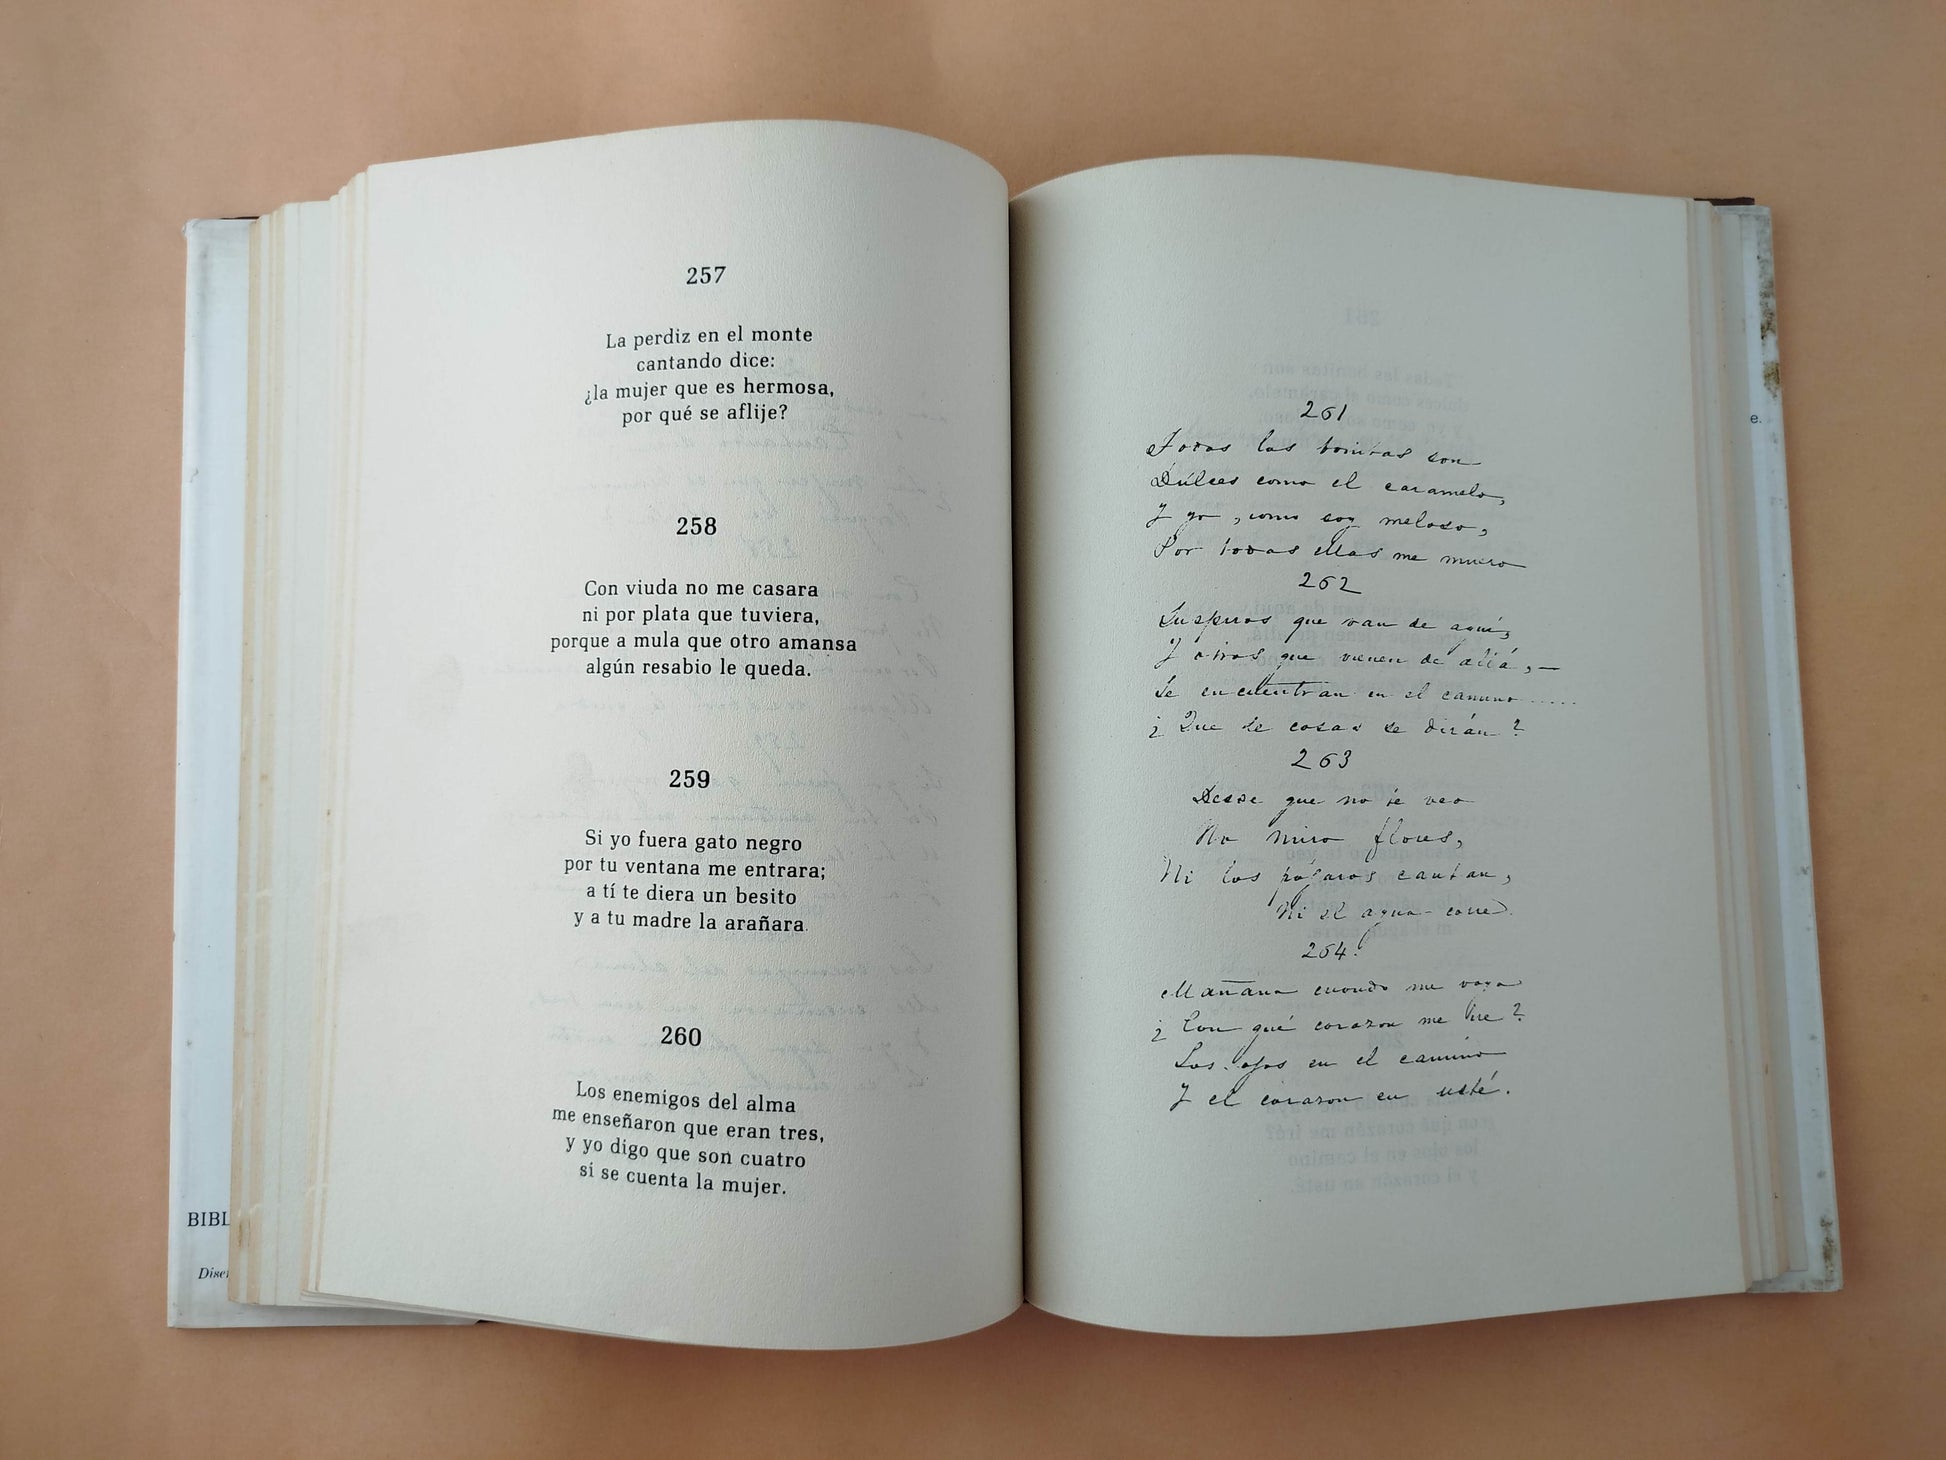 257
La perdiz en el monte
cantando dice:
¿la mujer que es hermosa,
por qué se aflije?
258
Con viuda no me casara
ni por plata que tuviera,
porque a mula que otro amansa
algún resabio le queda.
259
Si yo fuera gato negro
por tu ventana me entrara;
a tí te diera un besito
y a tu madre la arañara.
260
Los enemigos del alma
me enseñaron que eran tres,
y yo digo que son cuatro
si se cuenta la mujer.
BIBL
Diser
261
Todas las bonitas son
Dulces como el caramelo,
Y yo, como soy meloso,
Por todas ellas me muero
262
Suspiros que van de aquí,
Y otros que vienen de allá, —
Se encuentran en el camino .....
¿Que de cosas se dirán?
263
Desde que no te veo
No miro flores,
Ni los pájaros cantan,
Ni el agua corre.
264.
Mañana cuando me vaya
¿Con qué corazon me iré?
Los ojos en el camino
Y el corazon en usté.
e.